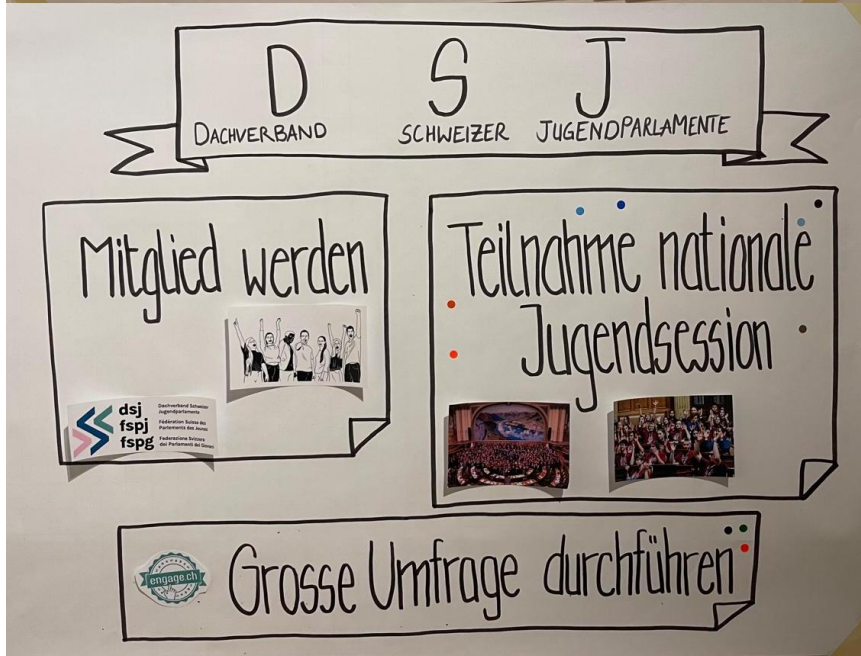 D S J
DACHVERBAND SCHWEIZER JUGENDPARLAMENTE
Mitglied werden
dsj
fspj
fspg
Dachverband Schweizer
Jugendparlamente
Fédération Suisse des
Parlements des Jeunes
Federazione Svizzera
dei Parlamenti dei Giovani
Teilnahme nationale
Jugendsession
engage.ch
Grosse Umfrage durchführen